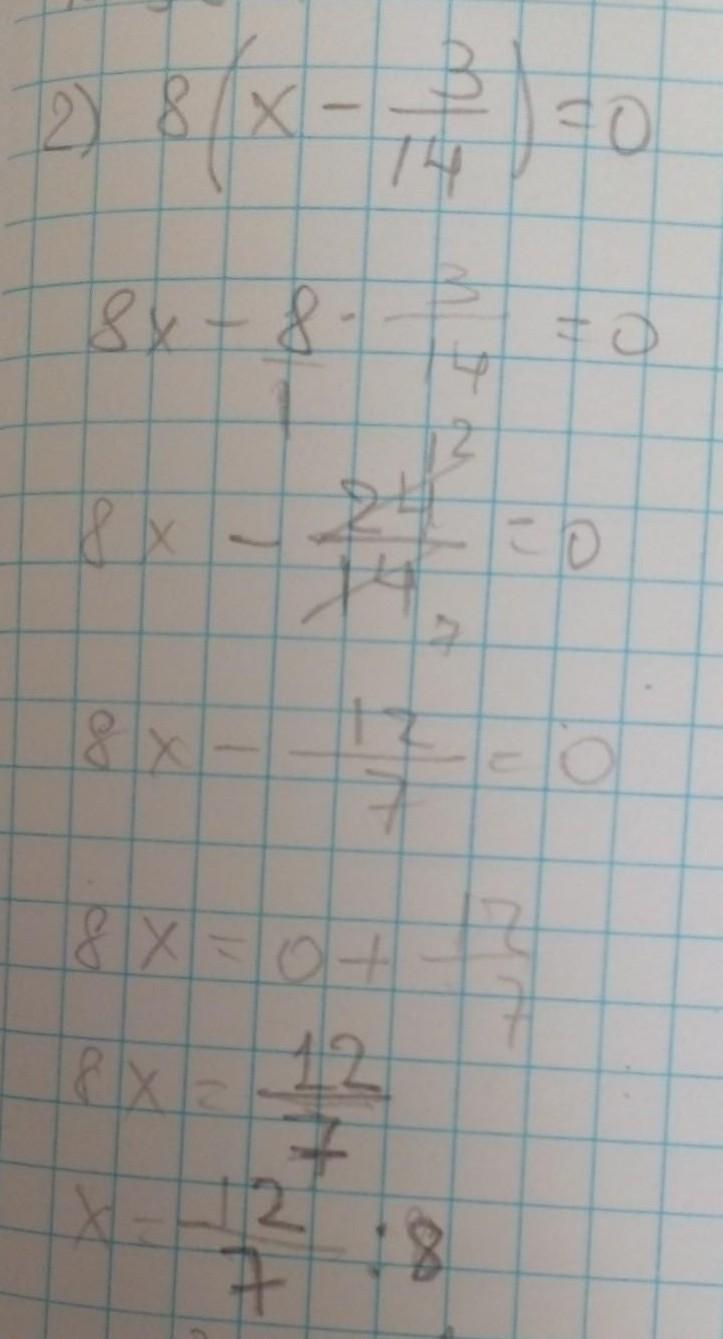 2) 8(x - 3/14) = 0
8x - 8/1 · 3/14 = 0
8x - 24/14 = 0 12 7
8x - 12/7 = 0
8x = 0 + 12/7
8x = 12/7
x = 12/7 : 8